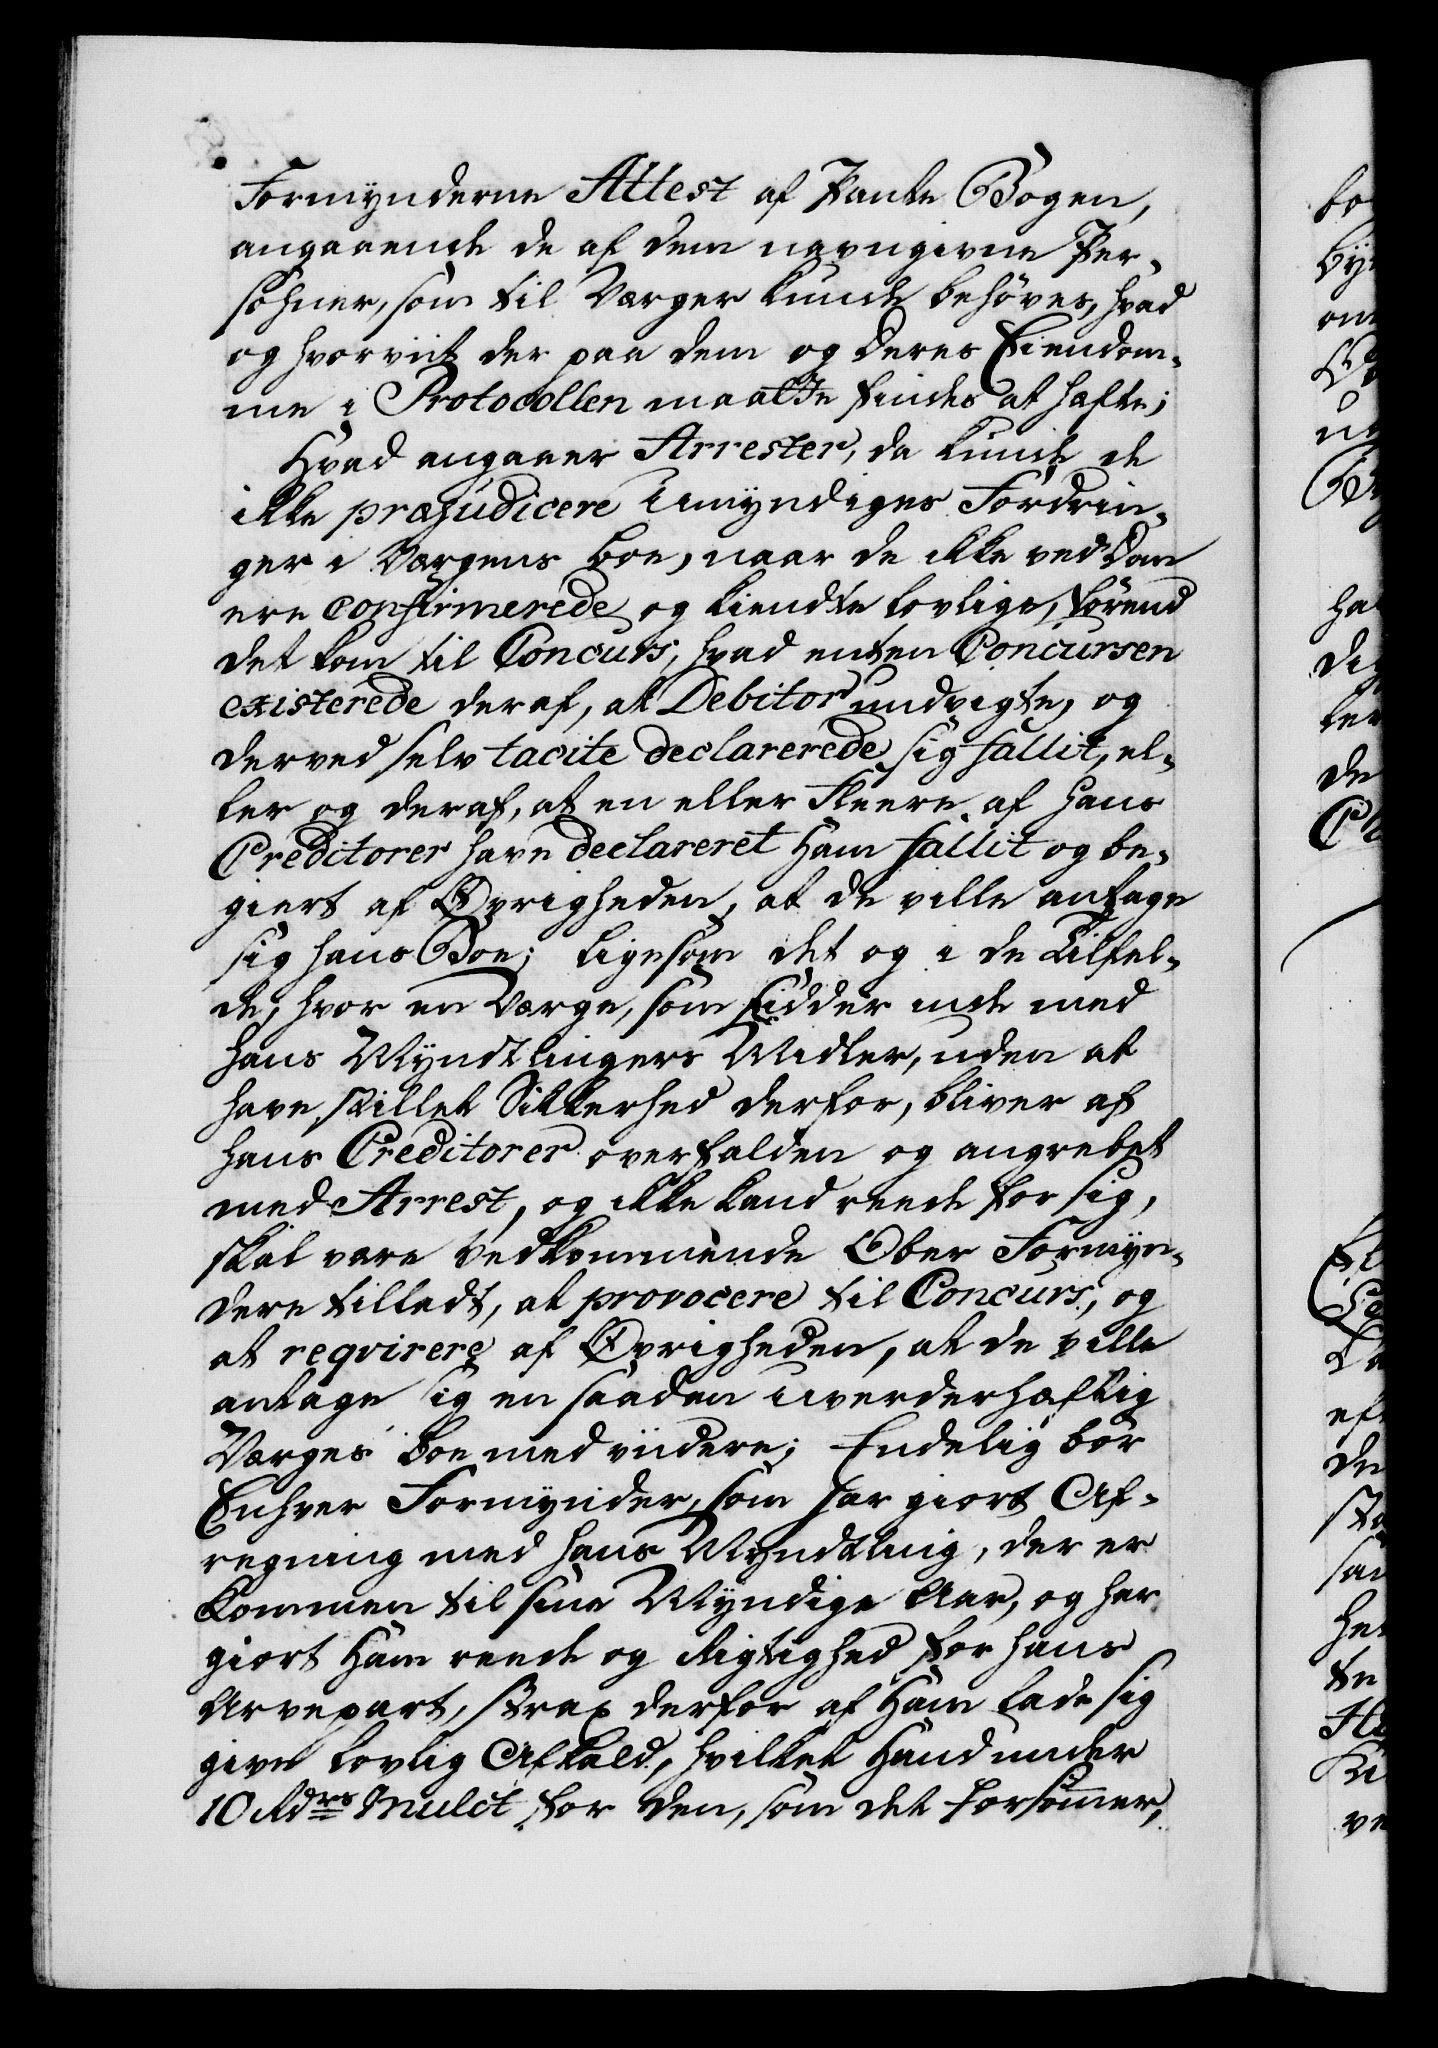 Formynderne Attest af Pante Bogen,
angaaende de af dem navngivne Per-
sohner, som til Værger kunde behöves, hvad
og hvorvidt der paa dem og deres Eiendom-
me i Protocollen maatte findes at hæfte;
Hvad angaaer Arrester, da kunde de
ikke præjudicere Umyndiges Fordrin-
ger i Værgens Boe, naar de ikke ved Dom
ere confirmerede og kiendte lovlige, förend
det kom til Concurs, hvad enten Concursen
existerede deraf, at Debitor undvigte, og
derved selv tacite declarerede sig fallit, el-
ler og deraf, at en eller Fleere af hans
Creditorer have declareret Ham fallit og be-
giert af Øvrigheden, at de ville antage
sig hans Boe; ligesom det og i de Tilfel-
de, hvor en Værge, som sidder inde med
hans Myndtlingers Midler, uden at
have stillet Sikkerhed derfor, bliver af
hans Creditorer overfalden og angrebet
med Arrest, og ikke kand reede for sig,
skal være Vedkommende Ober Formyn-
dere tilladt, at provocere til Concurs, og
at reqvirere af Øvrigheden, at de ville
antage sig en saadan uverderhæftig
Værges Boe med viidere; Endelig bör
Enhver Formynder, som har giort Af-
regning med hans Myndtling, der er
kommen til sine Myndige Aar, og har
giort Ham reede og Rigtighed for hans
Arvepart, strax derfor af Ham lade sig
give lovlig Afkald, hvilket Hand under
10 Rdrs Mulct for den, som det forsömmer,